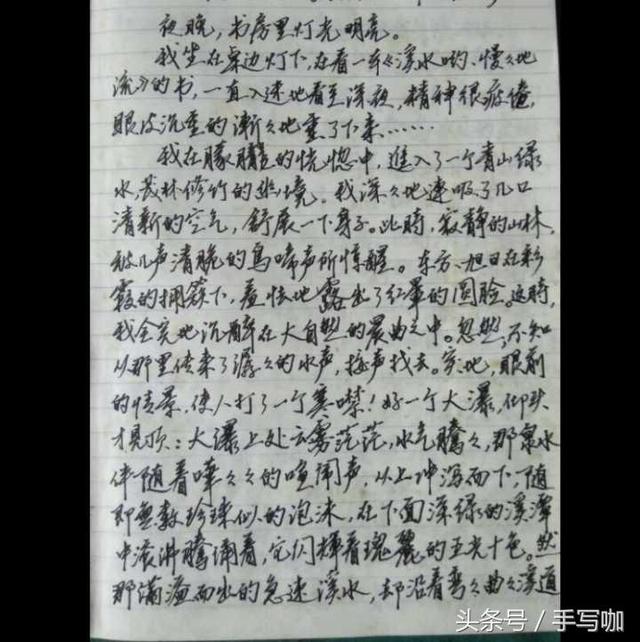 夜晚，书房里灯光明亮。
我坐在桌边灯下，在看一本《溪水哟、慢々地
流》的书，一直入迷地看至深夜，精神很疲倦，
眼皮沉重的渐々地垂了下来……
我在朦胧的恍惚中，進入了一个青山绿
水，茂林修竹的幽境。我深々地連吸了几口
清新的空气，舒展一下身子。此時，寂静的山林，
被几声清脆的鸟啼声所惊醒。东方、旭日在彩
霞的拥簇下，羞怯地露出了红晕的圆脸。这時，
我全实地沉醉在大自然的晨曲之中。忽然，不知
从那里传来了潺々的水声，按声找去。突地，眼前
的情景，使人打了一个寒噤！好一个大瀑，仰头
才見顶：大瀑上处云雾茫茫，水气騰々，那泉水
伴随着嘩々々的喧闹声，从上冲泻而下，随
即無数珍珠似的泡沫，在下面深绿的溪潭
中滚沸騰涌着，它闪輝着瑰麗的五光十色。然
那满溢而出的急速溪水，却沿着弯々曲々溪道
头条号 / 手写咖